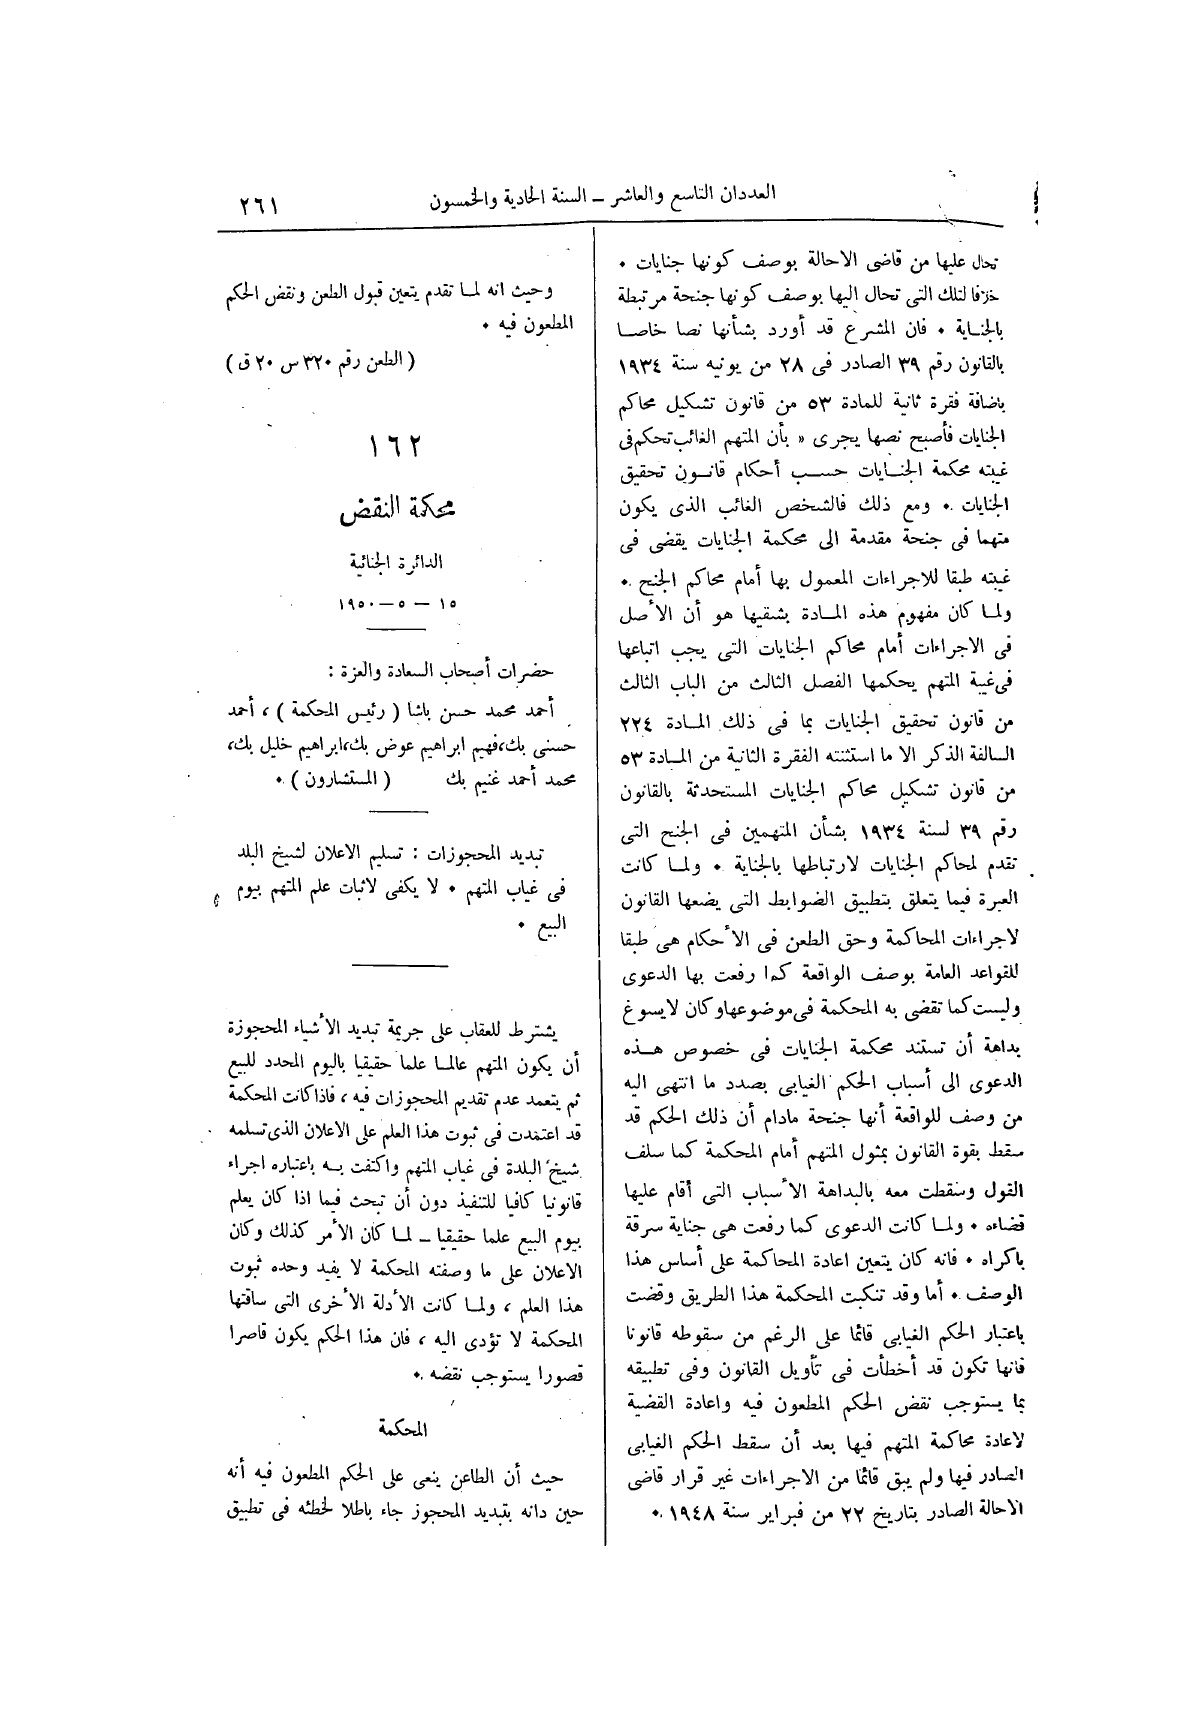 العددان التاسع والعاشر ــ السنة الحادية والخمسون
٢٦١
تحال عليها من قاضى الاحالة بوصف كونها جنايات ٠
خلافا لتلك التى تحال اليها بوصف كونها جنحة مرتبطة
بالجناية ٠ فان المشرع قد أورد بشأنها نصا خاصا
بالقانون رقم ٣٩ الصادر فى ٢٨ من يونيه سنة ١٩٣٤
باضافة فقرة ثانية للمادة ٥٣ من قانون تشكيل محاكم
الجنايات فأصبح نصها يجرى « بأن المتهم الغائب تحكم فى
غيبته محكمة الجنايات حسب أحكام قانون تحقيق
الجنايات ٠ ومع ذلك فالشخص الغائب الذى يكون
متهما فى جنحة مقدمة الى محكمة الجنايات يقضى فى
غيبته طبقا للاجراءات المعمول بها أمام محاكم الجنح ٠
ولما كان مفهوم هذه المادة بشقيها هو أن الأصل
فى الاجراءات أمام محاكم الجنايات التى يجب اتباعها
فى غيبة المتهم يحكمها الفصل الثالث من الباب الثالث
من قانون تحقيق الجنايات بما فى ذلك المادة ٢٢٤
السالفة الذكر الا ما استثنته الفقرة الثانية من المادة ٥٣
من قانون تشكيل محاكم الجنايات المستحدثة بالقانون
رقم ٣٩ لسنة ١٩٣٤ بشأن المتهمين فى الجنح التى
تقدم لمحاكم الجنايات لارتباطها بالجناية ٠ ولما كانت
العبرة فيما يتعلق بتطبيق الضوابط التى يضعها القانون
لاجراءات المحاكمة وحق الطعن فى الأحكام هى طبقا
للقواعد العامة بوصف الواقعة كما رفعت بها الدعوى
وليست كما تقضى به المحكمة فى موضوعها وكان لا يسوغ
بداهة أن تستند محكمة الجنايات فى خصوص هذه
الدعوى الى أسباب الحكم الغيابى بصدد ما انتهى اليه
من وصف للواقعة أنها جنحة مادام أن ذلك الحكم قد
سقط بقوة القانون بمثول المتهم أمام المحكمة كما سلف
القول وسقطت معه بالبداهة الأسباب التى أقام عليها
قضاءه ٠ ولما كانت الدعوى كما رفعت هى جناية سرقة
باكراه ٠ فانه كان يتعين اعادة المحاكمة على أساس هذا
الوصف ٠ أما وقد تنكبت المحكمة هذا الطريق وقضت
باعتبار الحكم الغيابى قائما على الرغم من سقوطه قانونا
فانها تكون قد أخطأت فى تأويل القانون وفى تطبيقه
بما يستوجب نقض الحكم المطعون فيه واعادة القضية
لاعادة محاكمة المتهم فيها بعد أن سقط الحكم الغيابى
الصادر فيها ولم يبق قائما من الاجراءات غير قرار قاضى
الاحالة الصادر بتاريخ ٢٢ من فبراير سنة ١٩٤٨ ٠
وحيث انه لما تقدم يتعين قبول الطعن ونقض الحكم
المطعون فيه ٠
( الطعن رقم ٣٢٠ س ٢٠ ق )
١٦٢
محكمة النقض
الدائرة الجنائية
١٥ ــ ٥ ــ ١٩٥٠
حضرات أصحاب السعادة والعزة :
أحمد محمد حسن باشا ( رئيس المحكمة ) ، أحمد
حسنى بك، فهيم ابراهيم عوض بك، ابراهيم خليل بك،
محمد أحمد غنيم بك ( المستشارون ) ٠
تبديد المحجوزات : تسليم الاعلان لشيخ البلد
فى غياب المتهم ٠ لا يكفى لاثبات علم المتهم بيوم
البيع ٠
يشترط للعقاب على جريمة تبديد الأشياء المحجوزة
أن يكون المتهم عالما علما حقيقيا باليوم المحدد للبيع
ثم يتعمد عدم تقديم المحجوزات فيه ، فاذا كانت المحكمة
قد اعتمدت فى ثبوت هذا العلم على الاعلان الذى تسلمه
شيخ البلدة فى غياب المتهم واكتفت به باعتباره اجراء
قانونيا كافيا للتنفيذ دون أن تبحث فيما اذا كان يعلم
بيوم البيع علما حقيقيا ــ لما كان الأمر كذلك وكان
الاعلان على ما وصفته المحكمة لا يفيد وحده ثبوت
هذا العلم ، ولما كانت الأدلة الأخرى التى ساقتها
المحكمة لا تؤدى اليه ، فان هذا الحكم يكون قاصرا
قصورا يستوجب نقضه ٠
المحكمة
حيث أن الطاعن ينعى على الحكم المطعون فيه أنه
حين دانه بتبديد المحجوز جاء باطلا لخطئه فى تطبيق